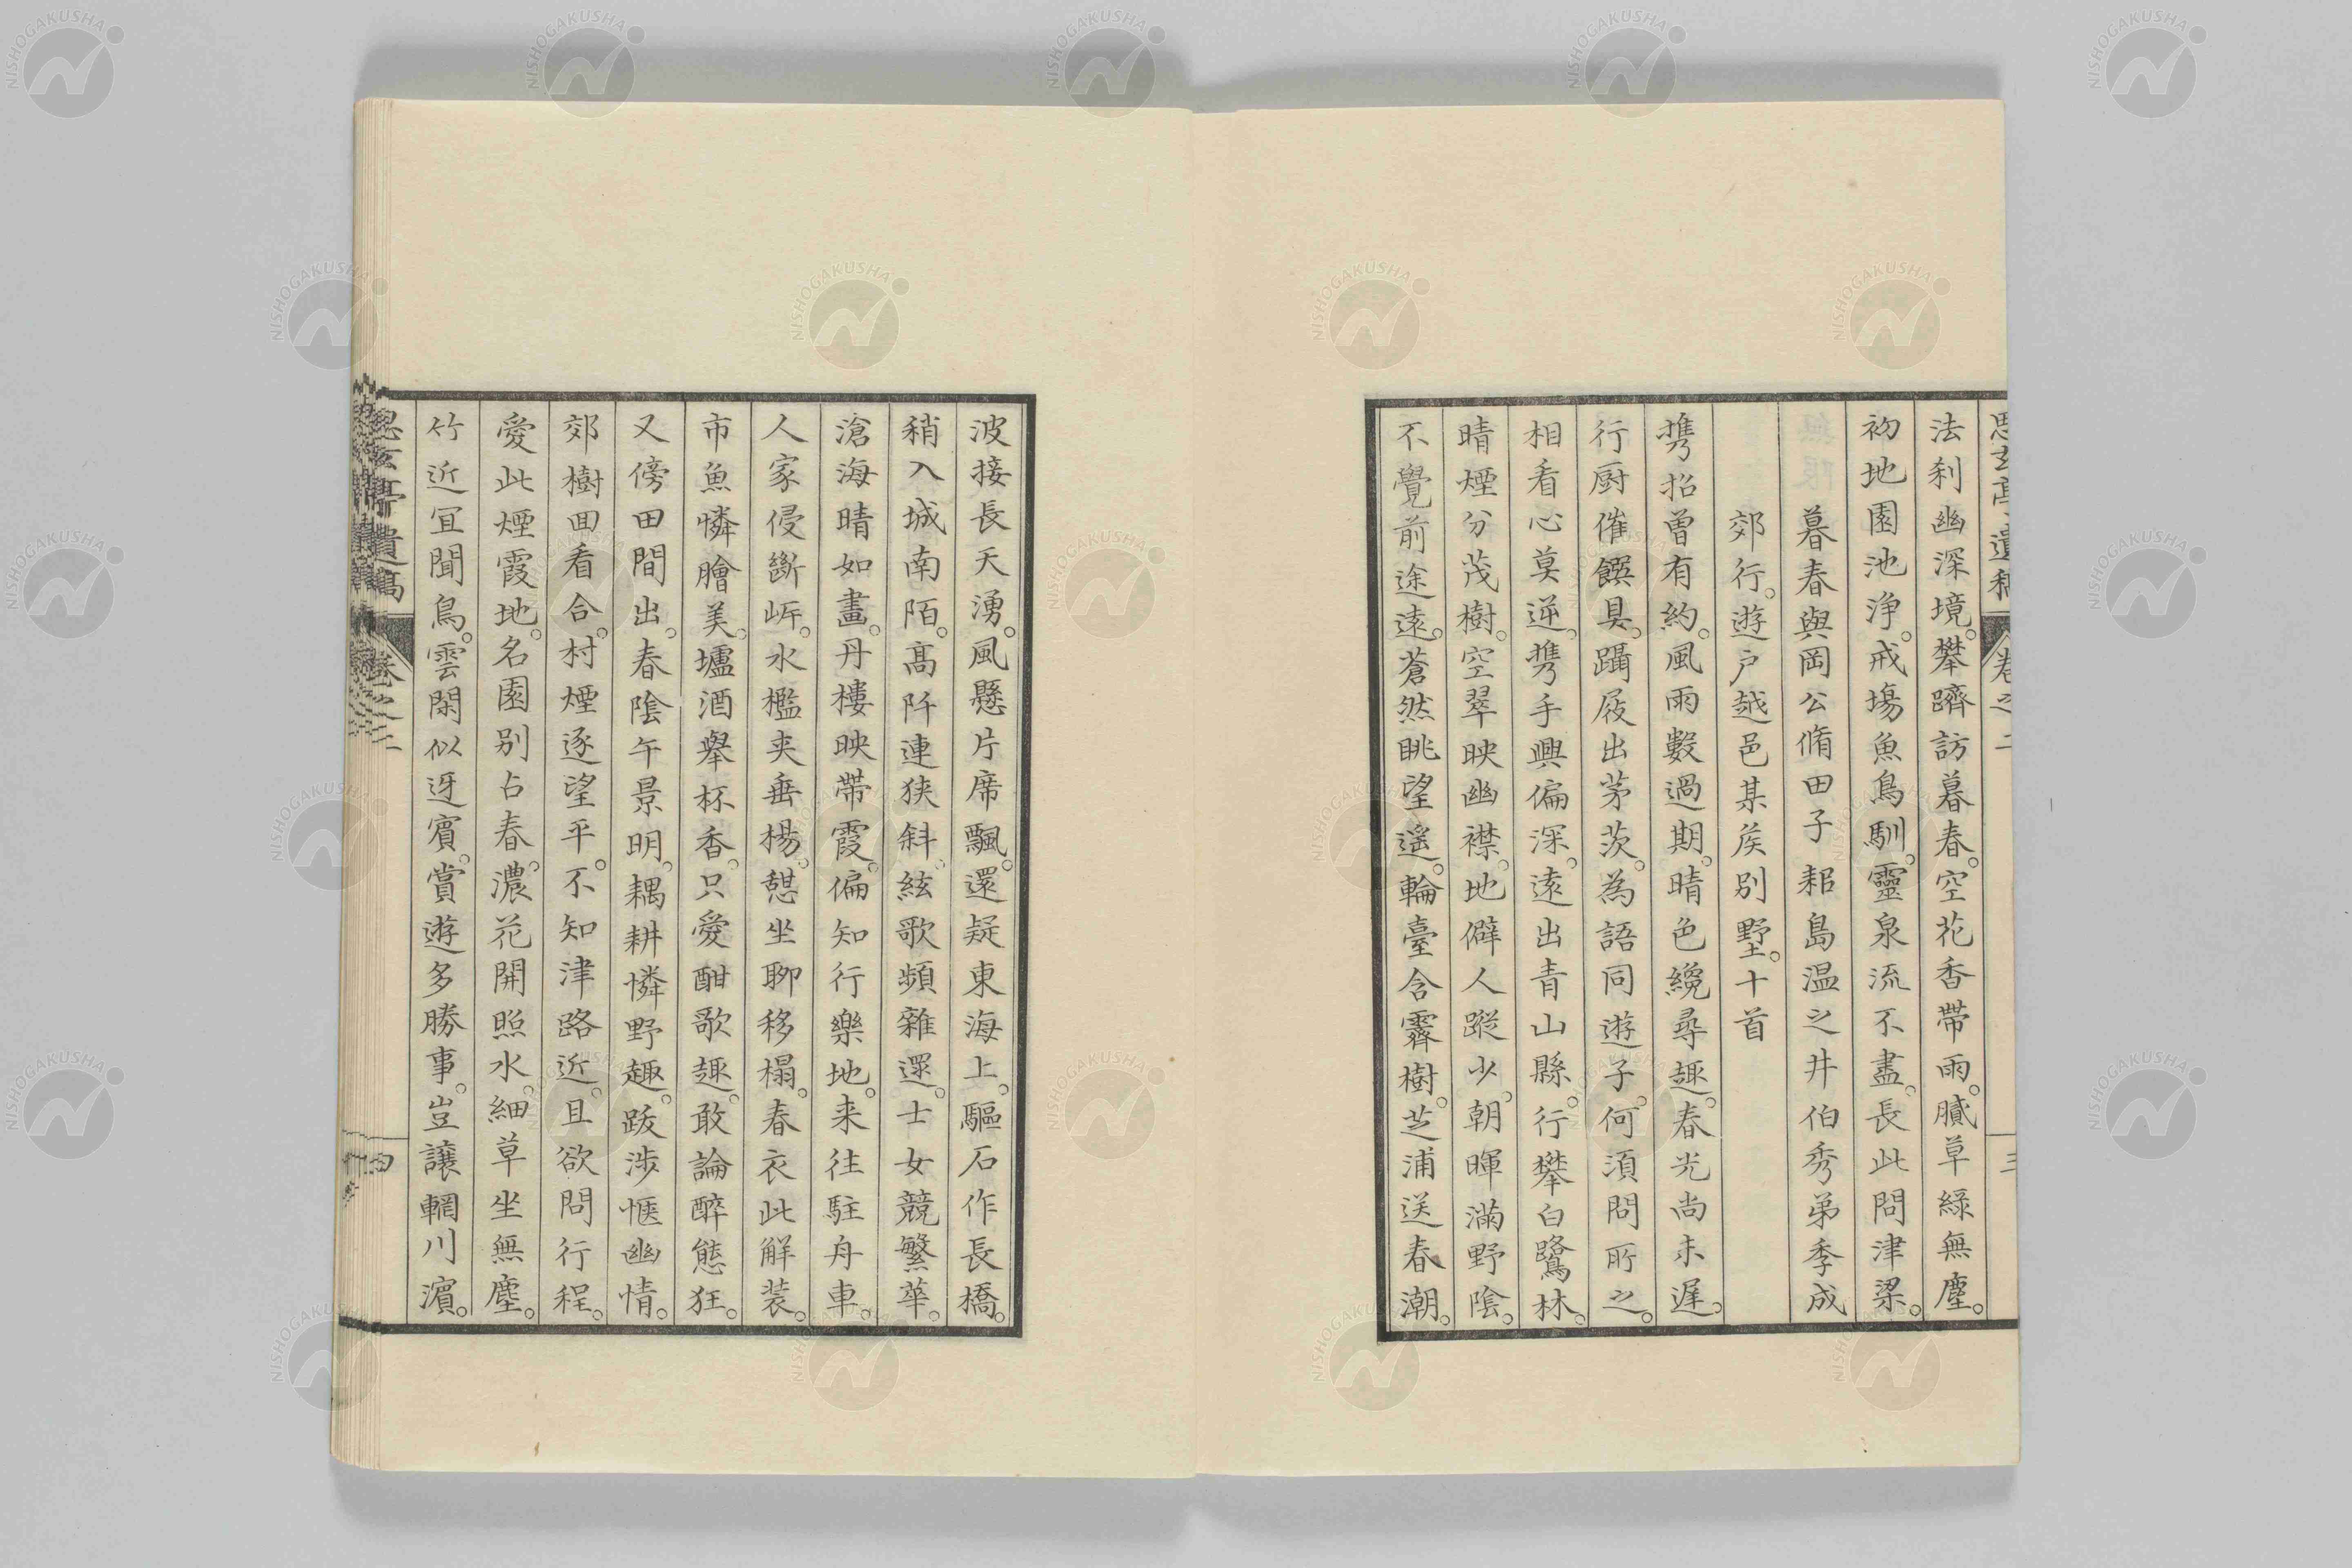 思玄亭遺稿 卷之二 三
法刹幽深境。攀躋訪暮春。空花香帶雨。膩草綠無塵。
初地園池浄。戒場魚鳥馴。靈泉流不盡。長此問津梁。
暮春與岡公脩田子耜島温之井伯秀弟季成
郊行。遊戸越邑某矦別墅。十首
携招曽有約。風雨數過期。晴色纔尋趣。春光尚未遅。
行厨催饌具。躡屐出茅茨。為語同遊子。何須問所之。
相看心莫逆。携手興偏深。遠出青山縣。行攀白鷺林。
晴煙分茂樹。空翠映幽襟。地僻人蹤少。朝暉滿野陰。
不覺前途遠。蒼然眺望遥。輪臺含霽樹。芝浦送春潮。
波接長天湧。風懸片席飄。還疑東海上。驅石作長橋。
稍入城南陌。髙阡連狭斜。絃歌頻雜遝。士女競繁華。
滄海晴如畫。丹樓映帶霞。偏知行樂地。来往駐舟車。
人家侵斷岓。水檻夹垂楊。憇坐聊移榻。春衣此解装。
市魚憐膾美。壚酒舉杯香。只愛酣歌趣。敢論醉態狂。
又傍田間出。春陰午景明。耦耕憐野趣。跋涉愜幽情。
郊樹囬看合。村煙逐望平。不知津路近。且欲問行程。
愛此煙霞地。名園別占春。濃花開照水。細草坐無塵。
竹近冝聞鳥。雲閑似迓賓。賞遊多勝事。豈譲輞川濵。
思玄亭遺稿 卷之二 四
NISHOGAKUSHA